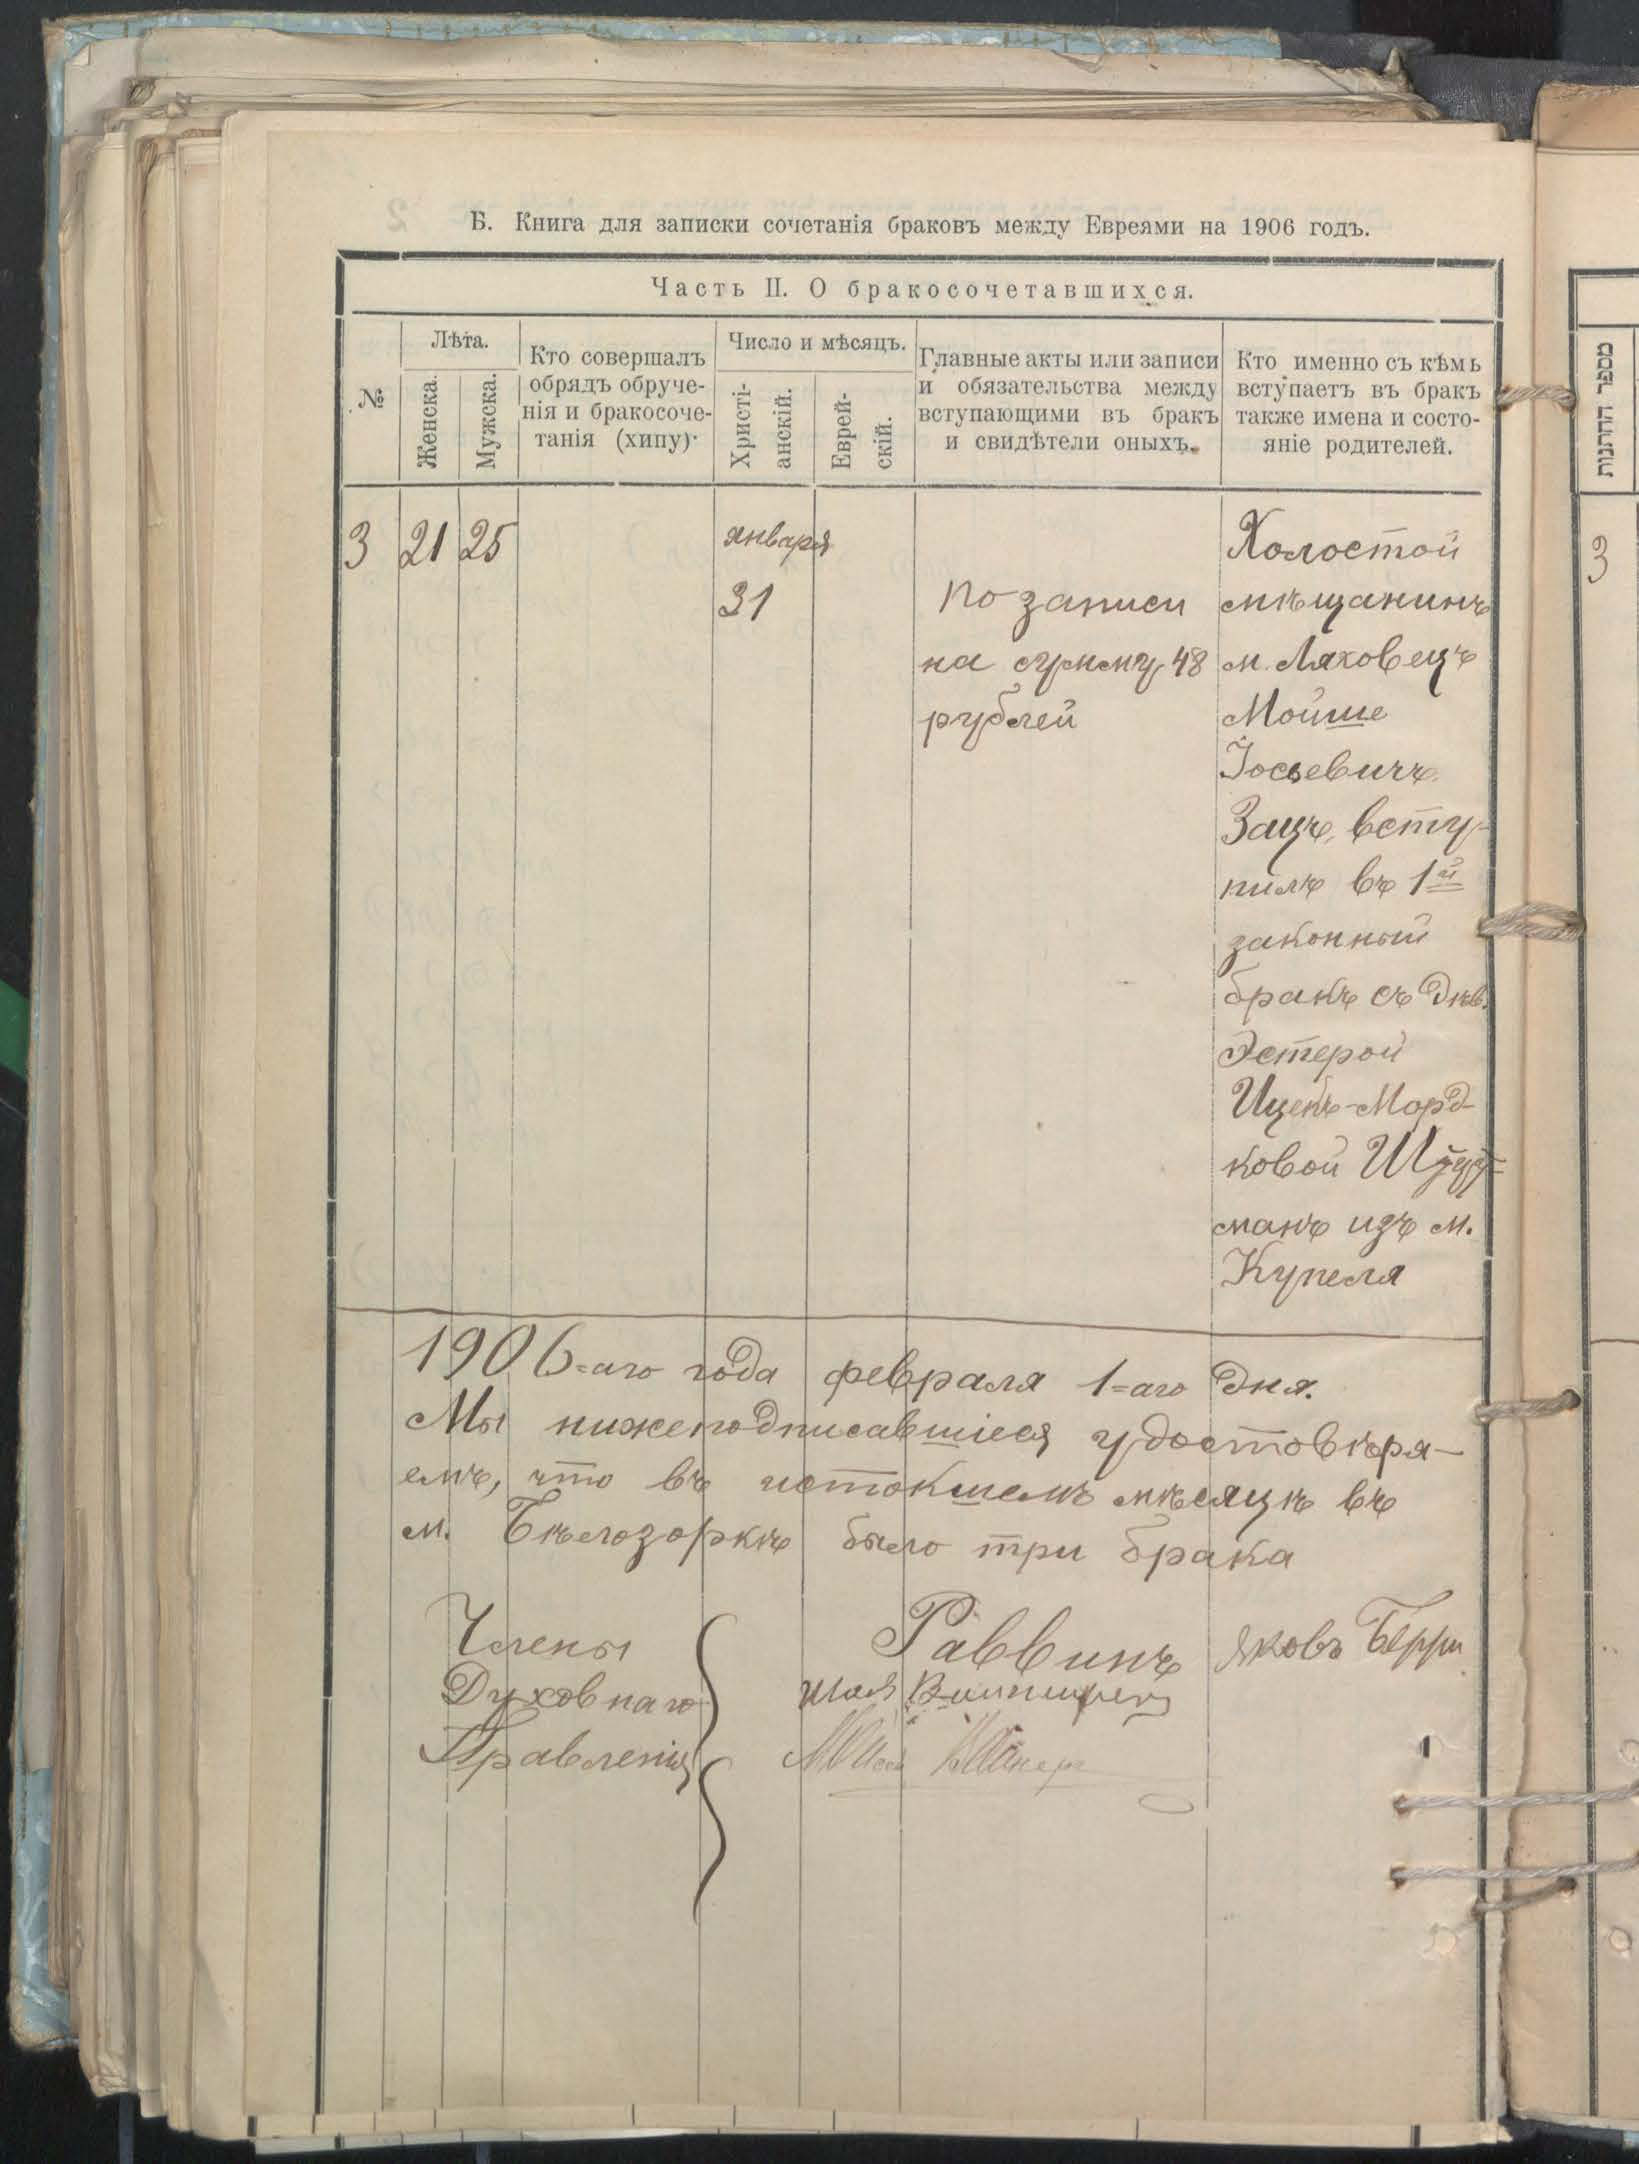 Б. Книга для записки сочетанія браковъ между Евреями на 1906 годъ.
Часть II. О бракосочетавшихся.
№
Лѣта.
Женска.
Мужска.
Кто совершалъ
обрядъ обруче-
нія и бракосоче-
танія (хипу).
Число и мѣсяцъ.
Христі-
анскій.
Еврей-
скій.
Главные акты или записи
и обязательства между
вступающими въ бракъ
и свидѣтели оныхъ.
Кто именно съ кѣмъ
вступаетъ въ бракъ
также имена и состо-
яніе родителей.
3 21 25
января
31
По записи
на сумму 48
рублей
Холостой
мѣщанинъ
м. Ляховецъ
Мойше
Іосьевичъ
Зацъ, всту-
пилъ въ 1й
законный
бракъ съ дѣв.
Эстерой
Ицекъ-Морд-
ковой
манъ изъ м.
Купеля
1906-аго года февраля 1-аго дня.
Мы нижеподписавшіеся удостовѣря-
емъ, что въ истокшемъ мѣсяцѣ въ
м. Бѣлозоркѣ было три брака
Члены
Духовнаго
Правленія
Раввинъ Яковъ
Шая
מספר החתונות
3